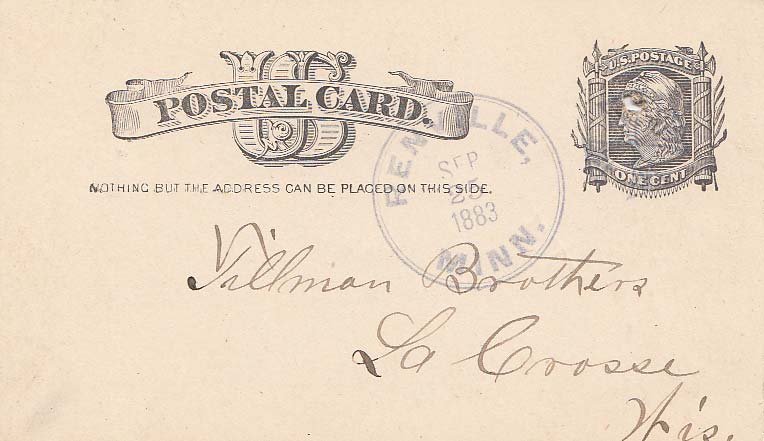 US
POSTAL CARD.
U.S. POSTAGE
ONE CENT
NOTHING BUT THE ADDRESS CAN BE PLACED ON THIS SIDE.
RENVILLE,
SEP
25
1883
MINN.
Tillman Brothers
La Crosse
Wis.